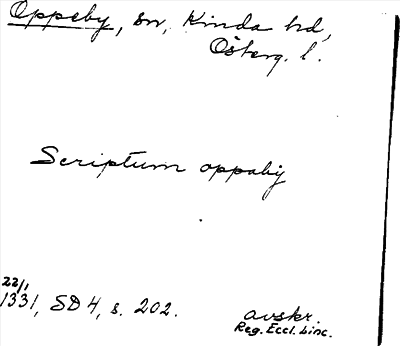 Oppeby, sn, Kinda hd,
Österg. l.
Scriptum oppaby
22/1
1331, SD 4, s. 202.
avskr.
Reg. Eccl. Linc.